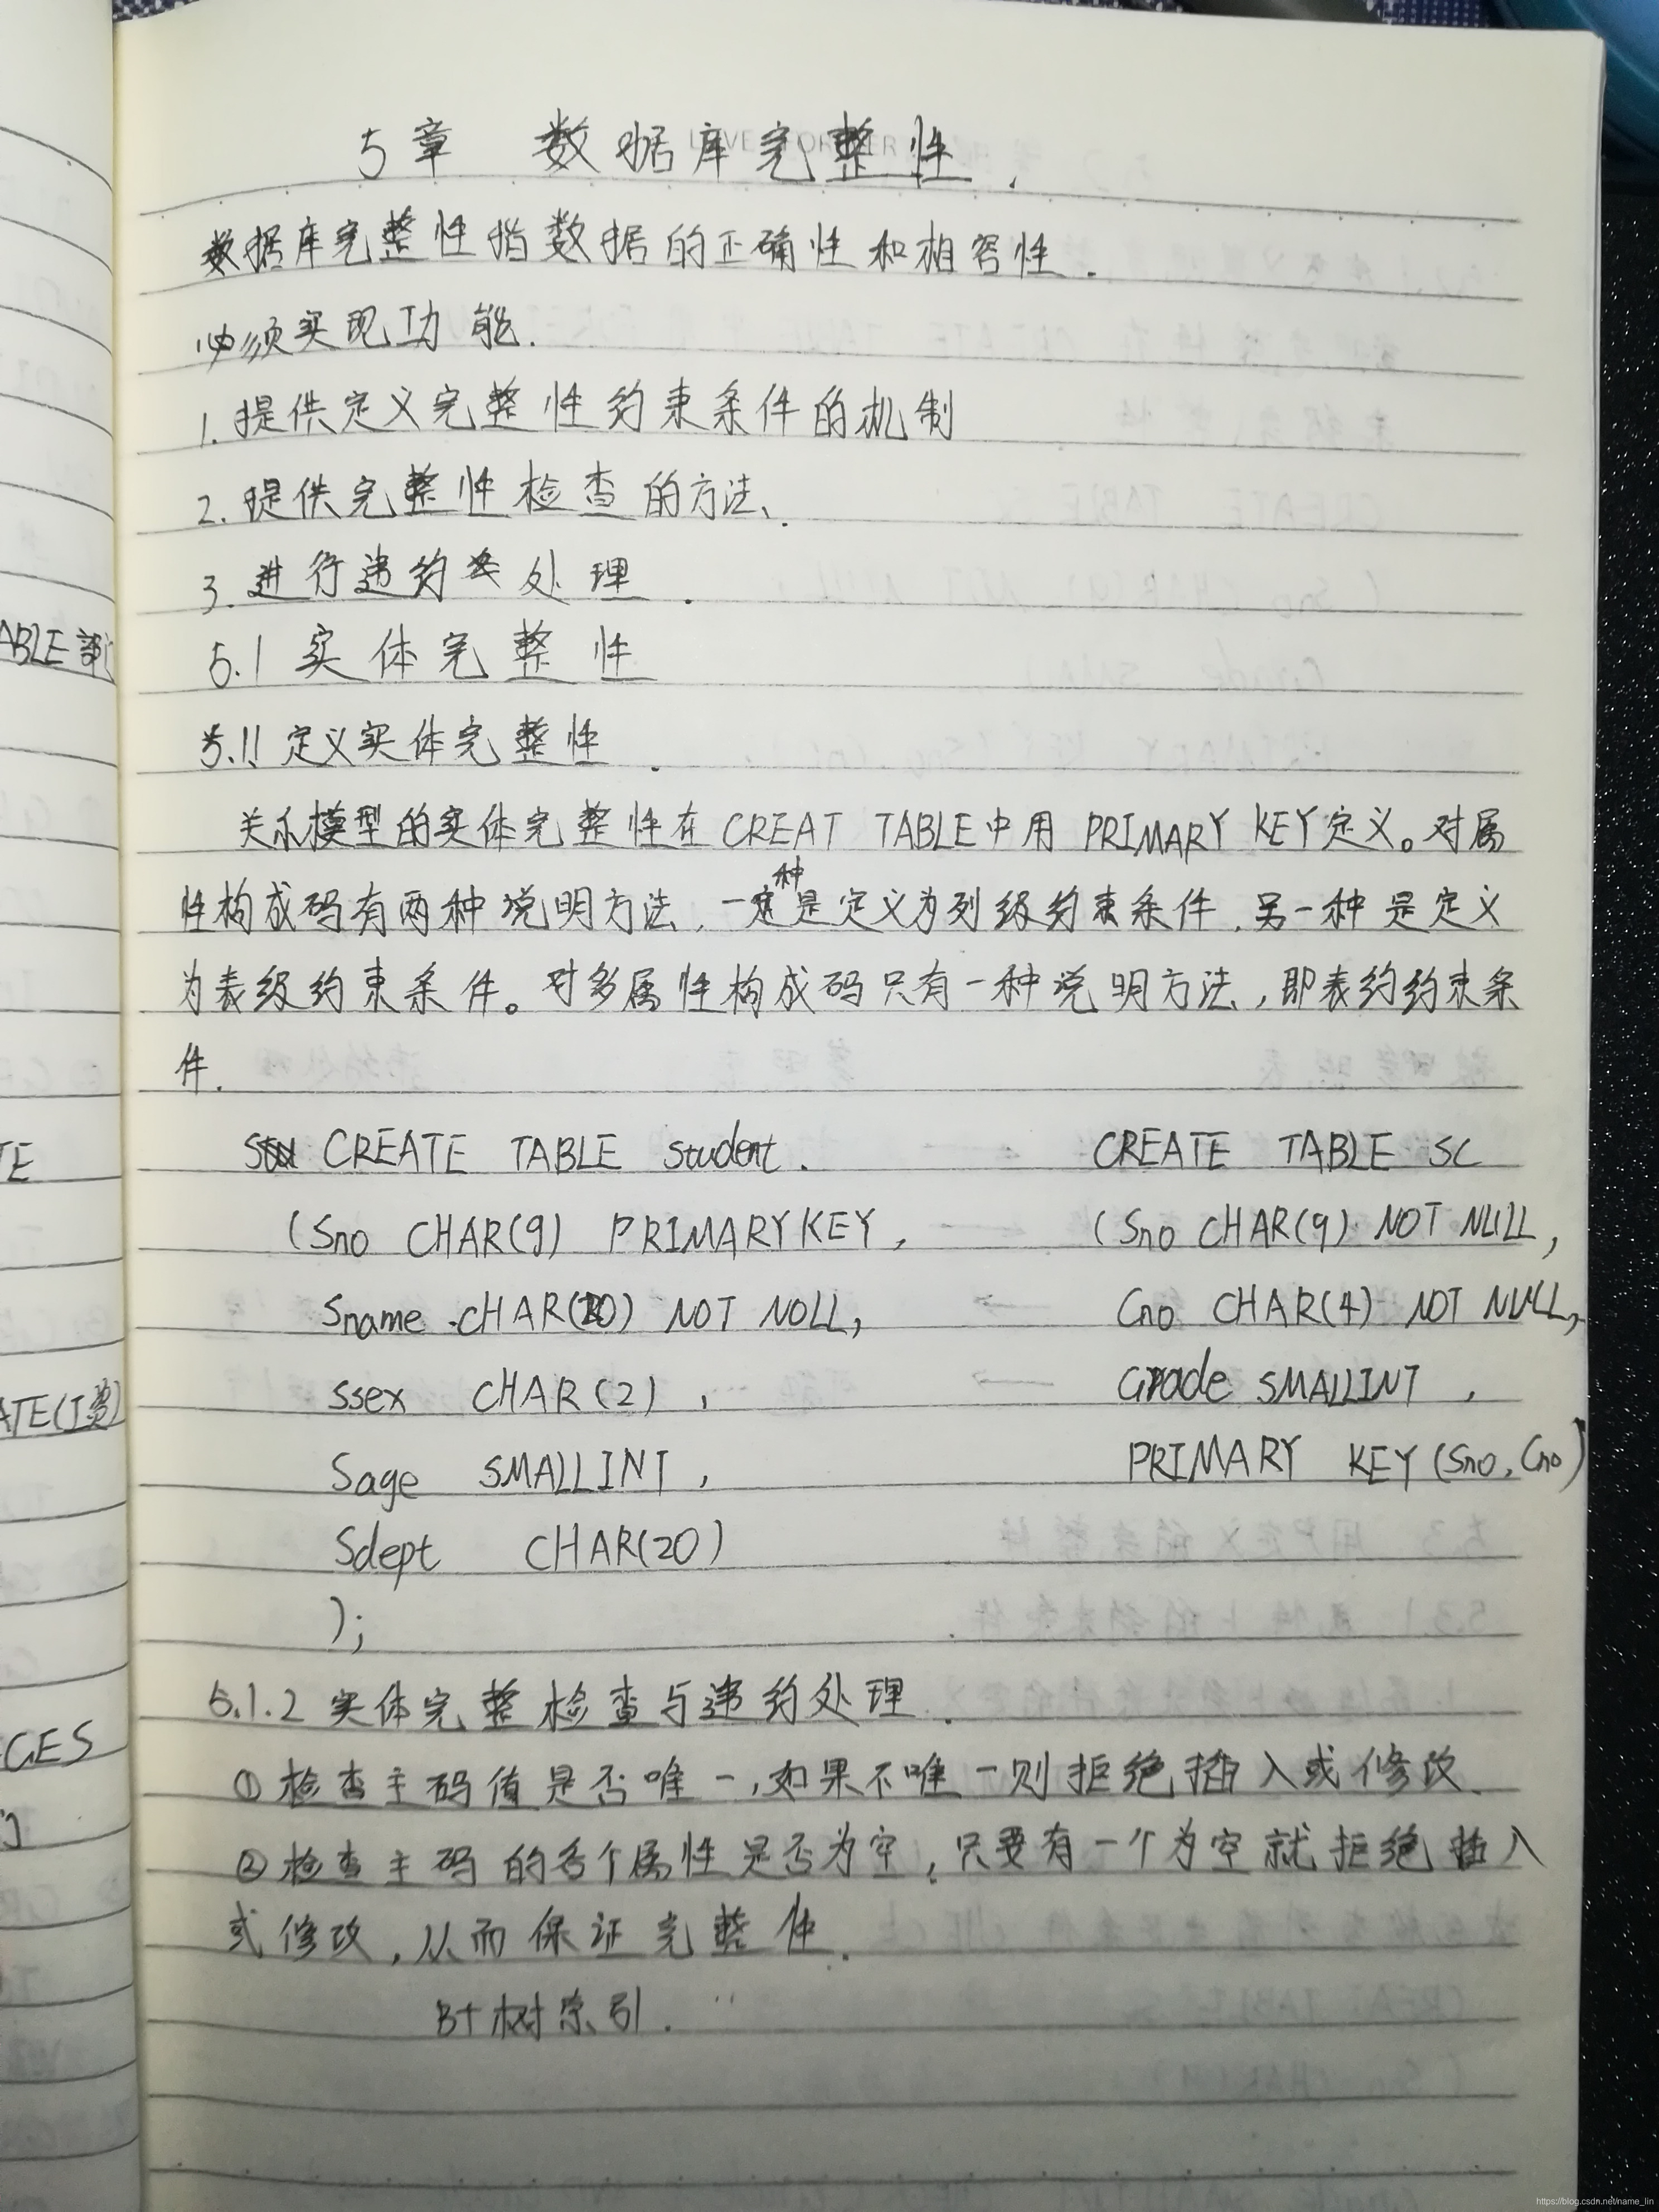 5章 数据库完整性.
数据库完整性指数据的正确性和相容性.
必须实现功能.
1.提供定义完整性约束条件的机制
2.提供完整性检查的方法.
3.进行违约处理.
5.1 实体完整性
5.1.1 定义实体完整性.
关系模型的实体完整性在CREAT TABLE中用 PRIMARY KEY定义。对属
性构成码有两种说明方法,一种是定义为列级约束条件,另一种是定义
为表级约束条件。对多属性构成码只有一种说明方法,即表约约束条
件.
CREATE TABLE student.
(Sno CHAR(9) PRIMARY KEY,
Sname CHAR(20) NOT NOLL,
Ssex CHAR(2),
Sage SMALLINT,
Sdept CHAR(20)
);
CREATE TABLE SC
(Sno CHAR(9) NOT NULL,
Cno CHAR(4) NOT NULL,
Grade SMALLINT,
PRIMARY KEY(Sno,Cno)
5.1.2 实体完整检查与违约处理.
①检查主码值是否唯一,如果不唯一则拒绝插入或修改.
②检查主码的各个属性是否为空,只要有一个为空就拒绝插入
或修改,从而保证完整性.
B+树索引.
ABLE
TE
ATE(
GES
https://blog.csdn.net/name_lin